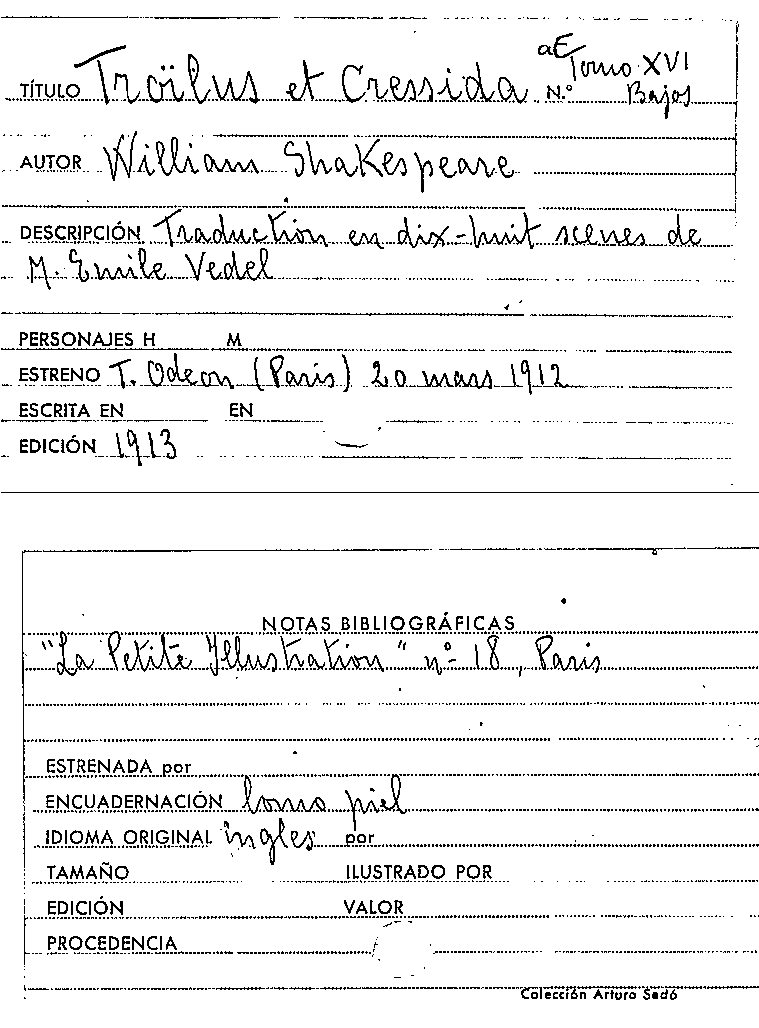 TÍTULO Troïlus et Cressida aE Tomo XVI
N.º Bajos
AUTOR William Shakespeare
DESCRIPCIÓN Traduction en dix-huit scenes de
M. Emile Vedel
PERSONAJES H M
ESTRENO T. Odeon (Paris) 20 mars 1912
ESCRITA EN EN
EDICIÓN 1913
NOTAS BIBLIOGRÁFICAS
"La Petite Illustration" nº 18, Paris
ESTRENADA por
ENCUADERNACIÓN lomo piel
IDIOMA ORIGINAL ingles por
TAMAÑO ILUSTRADO POR
EDICIÓN VALOR
PROCEDENCIA
Colección Arturo Sedó